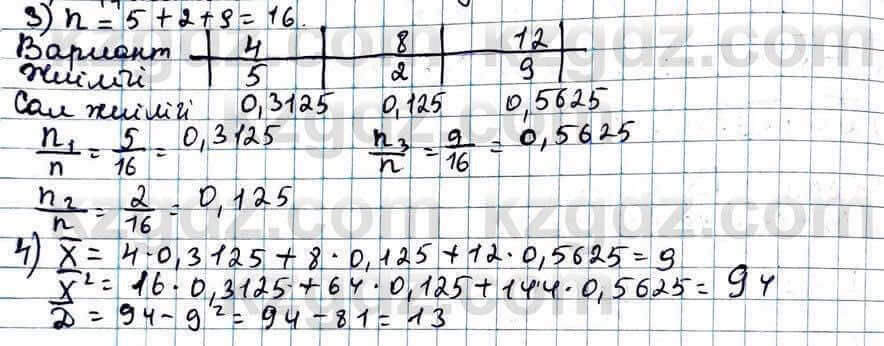 3) n = 5 + 2 + 9 = 16.
Вариант 4 8 12
Жиілігі 5 2 9
Сал жиілігі 0,3125 0,125 0,5625
n₁/n = 5/16 = 0,3125 n₃/n = 9/16 = 0,5625
n₂/n = 2/16 = 0,125
4) X̄ = 4·0,3125 + 8·0,125 + 12·0,5625 = 9
X̄² = 16·0,3125 + 64·0,125 + 144·0,5625 = 94
D = 94 - 9² = 94 - 81 = 13